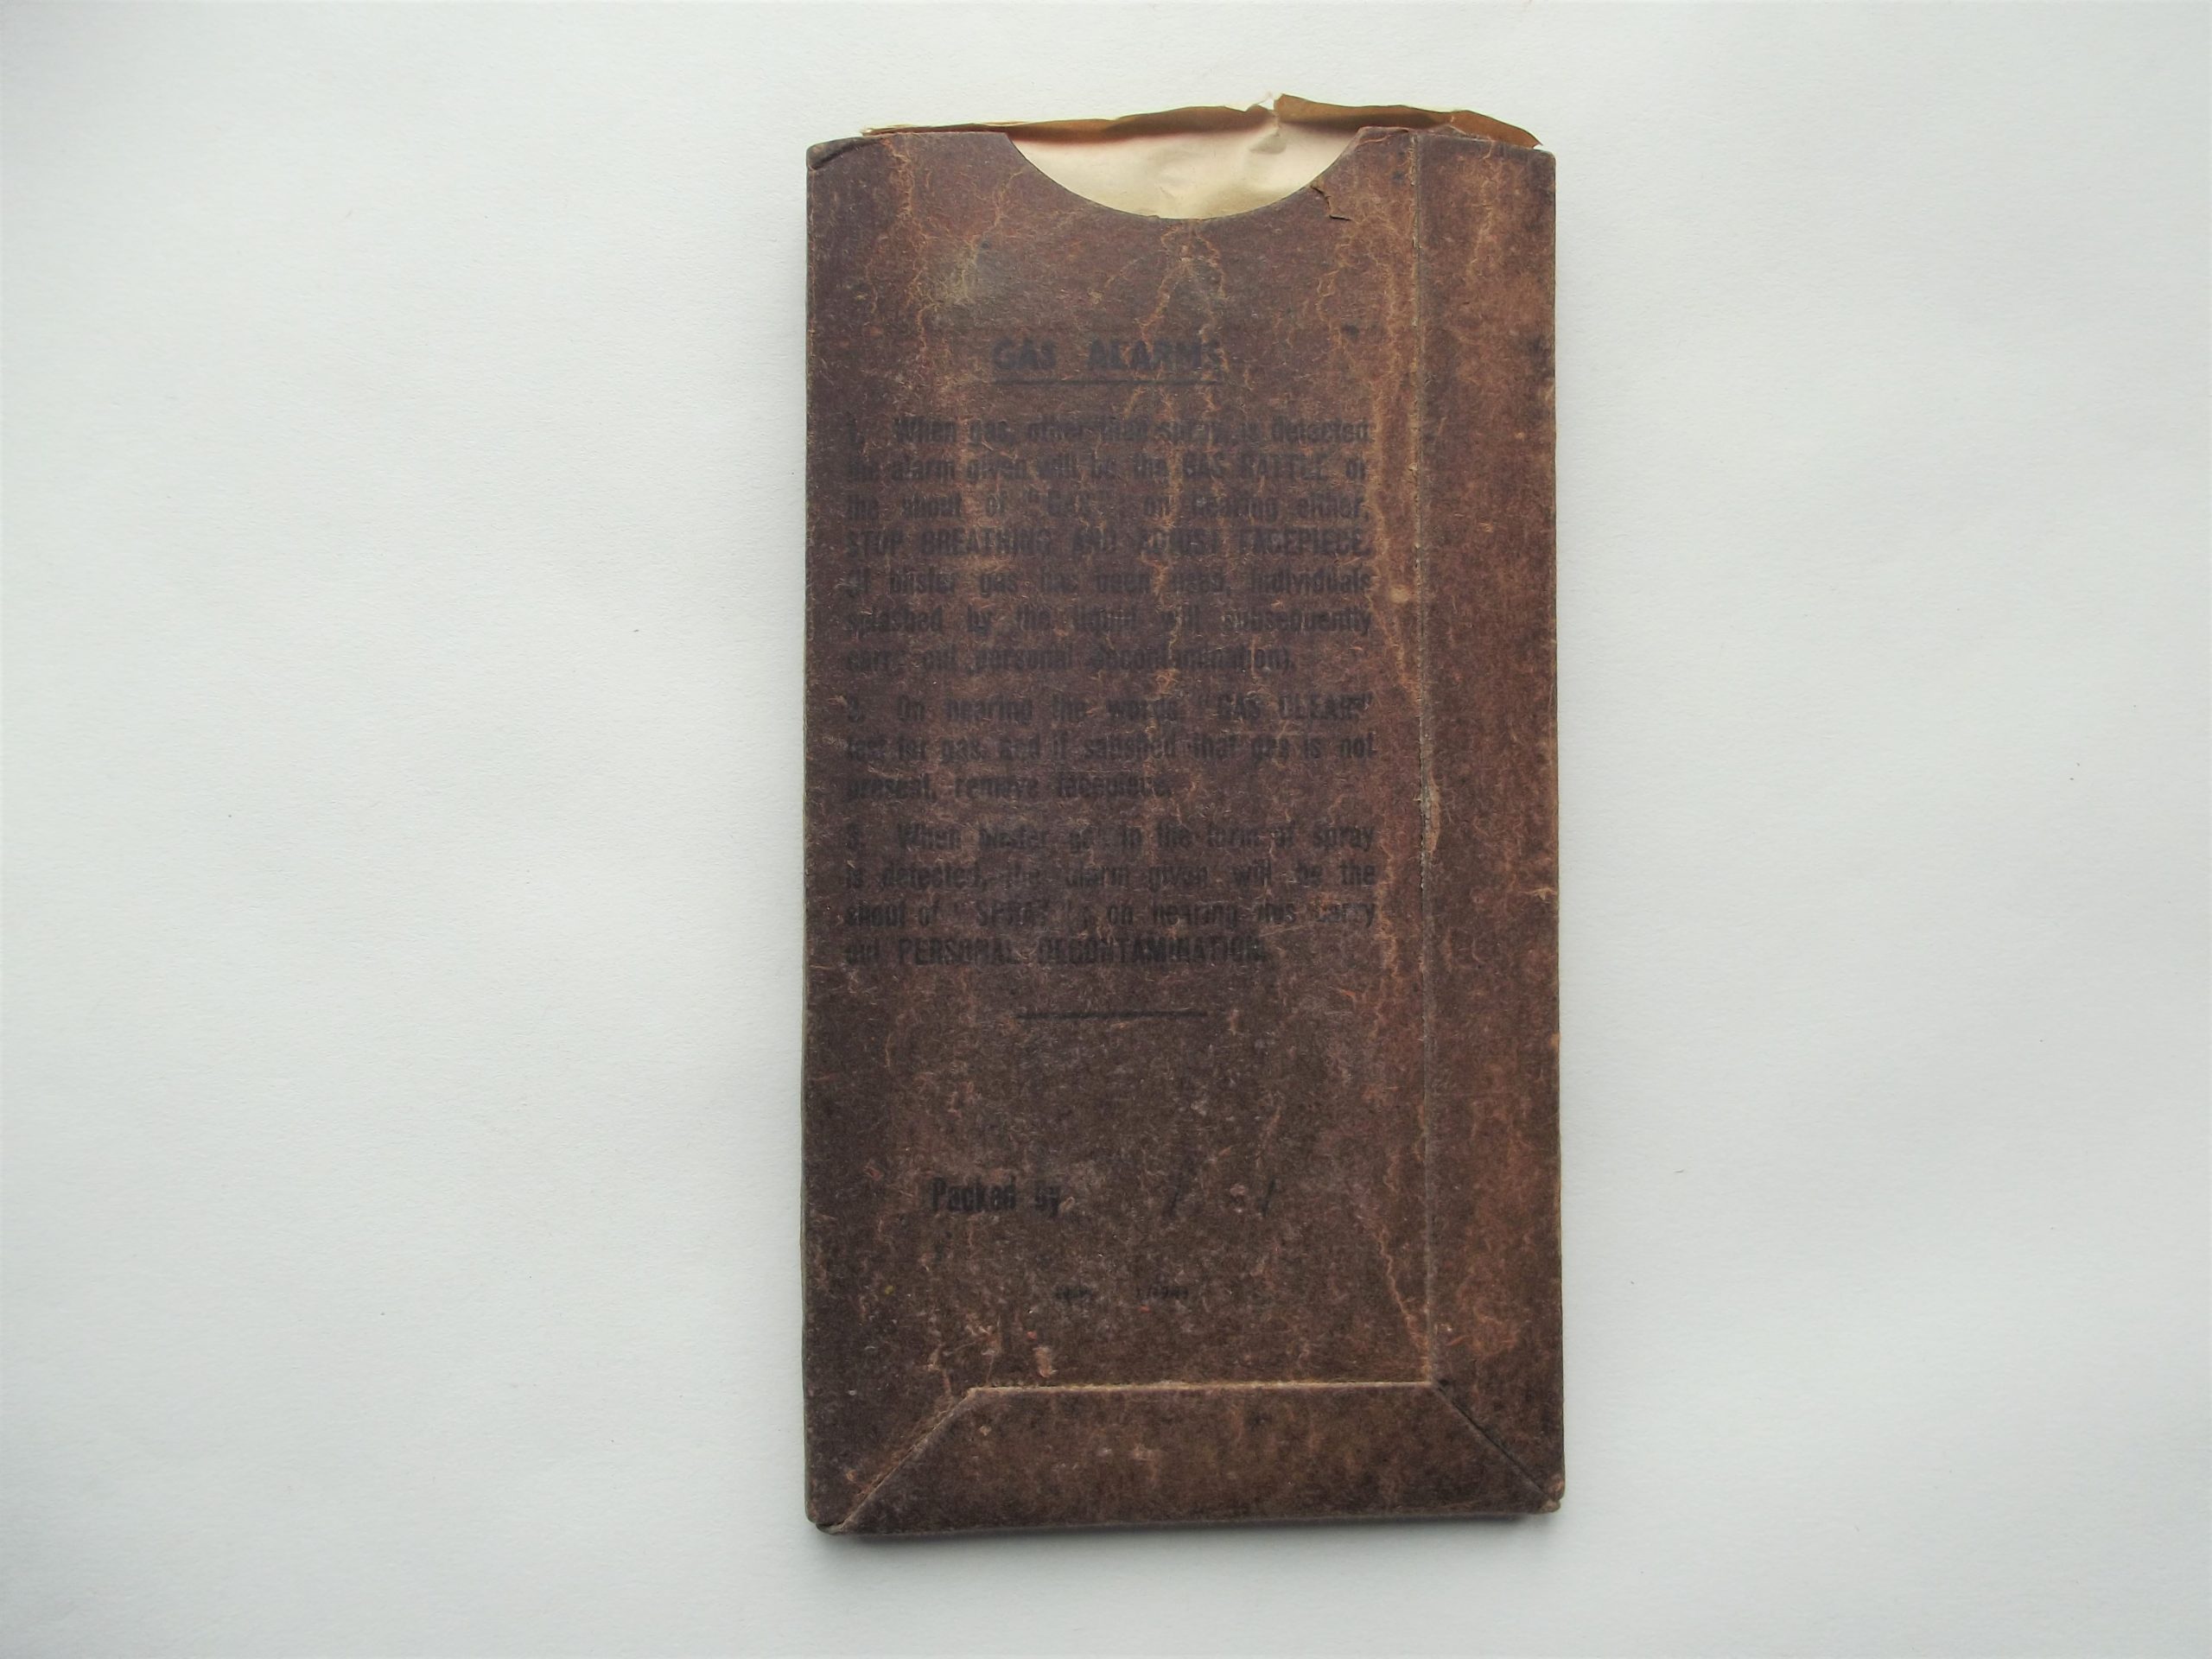 GAS ALARMS
1. When gas, other than spray, is detected
the alarm given will be the GAS RATTLE or
the shout of "GAS"; on hearing either,
STOP BREATHING AND ADJUST FACEPIECE.
(If blister gas has been used, individuals
splashed by the liquid will subsequently
carry out personal decontamination).
2. On hearing the words "GAS CLEAR"
test for gas and if satisfied that gas is not
present, remove facepiece.
3. When blister gas in the form of spray
is detected, the alarm given will be the
shout of "SPRAY"; on hearing this carry
out PERSONAL DECONTAMINATION.
Packed by / /